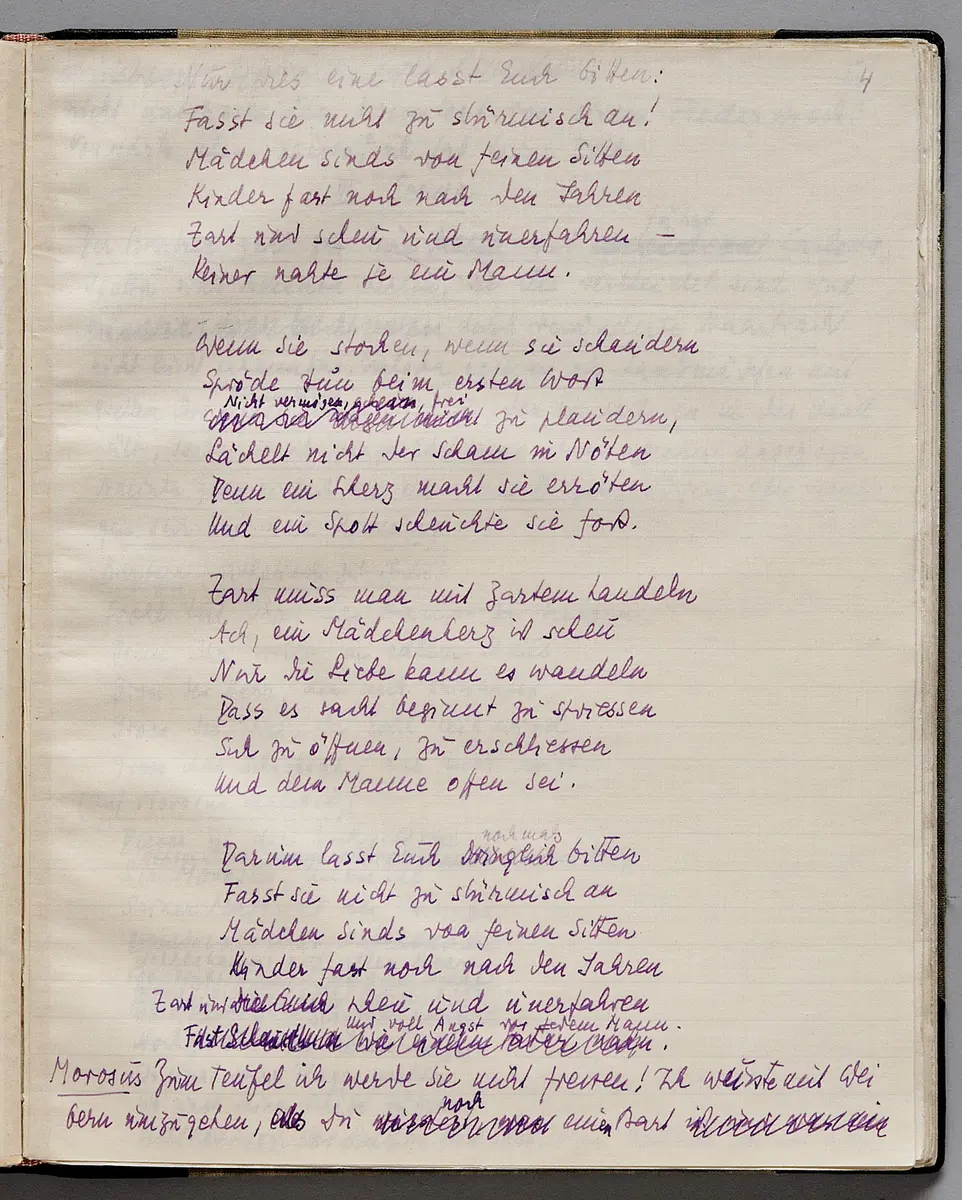 4
Nur dies eine lasst Euch bitten:
Fasst sie nicht zu stürmisch an!
Mädchen sinds von feinen Sitten
Kinder fast noch nach den Jahren
Zart und scheu und unerfahren –
Keiner nahte je ein Mann.
Wenn sie stocken, wenn sie schaudern
Spröde tun beim ersten Wort
Nicht vermögen, frei
zu plaudern,
Lächelt nicht der Scham in Nöten
Denn ein Scherz macht sie erröten
Und ein Spott scheuchte sie fort.
Zart muss man mit Zartem handeln
Ach, ein Mädchenherz ist scheu
Nur die Liebe kann es wandeln
Dass es sacht beginnt zu spriessen
Sich zu öffnen, zu erschliessen
Und dem Manne offen sei.
nochmals
Darum lasst Euch dringlich bitten
Fasst sie nicht zu stürmisch an
Mädchen sinds von feinen Sitten
Kinder fast noch nach den Jahren
Zart und scheu und unerfahren
Und voll Angst vor jedem Mann.
Fast
Morosus Zum Teufel ich werde sie nicht fressen! Ich wusste mit Wei
noch
bern umzugehen, als Du einen Bart